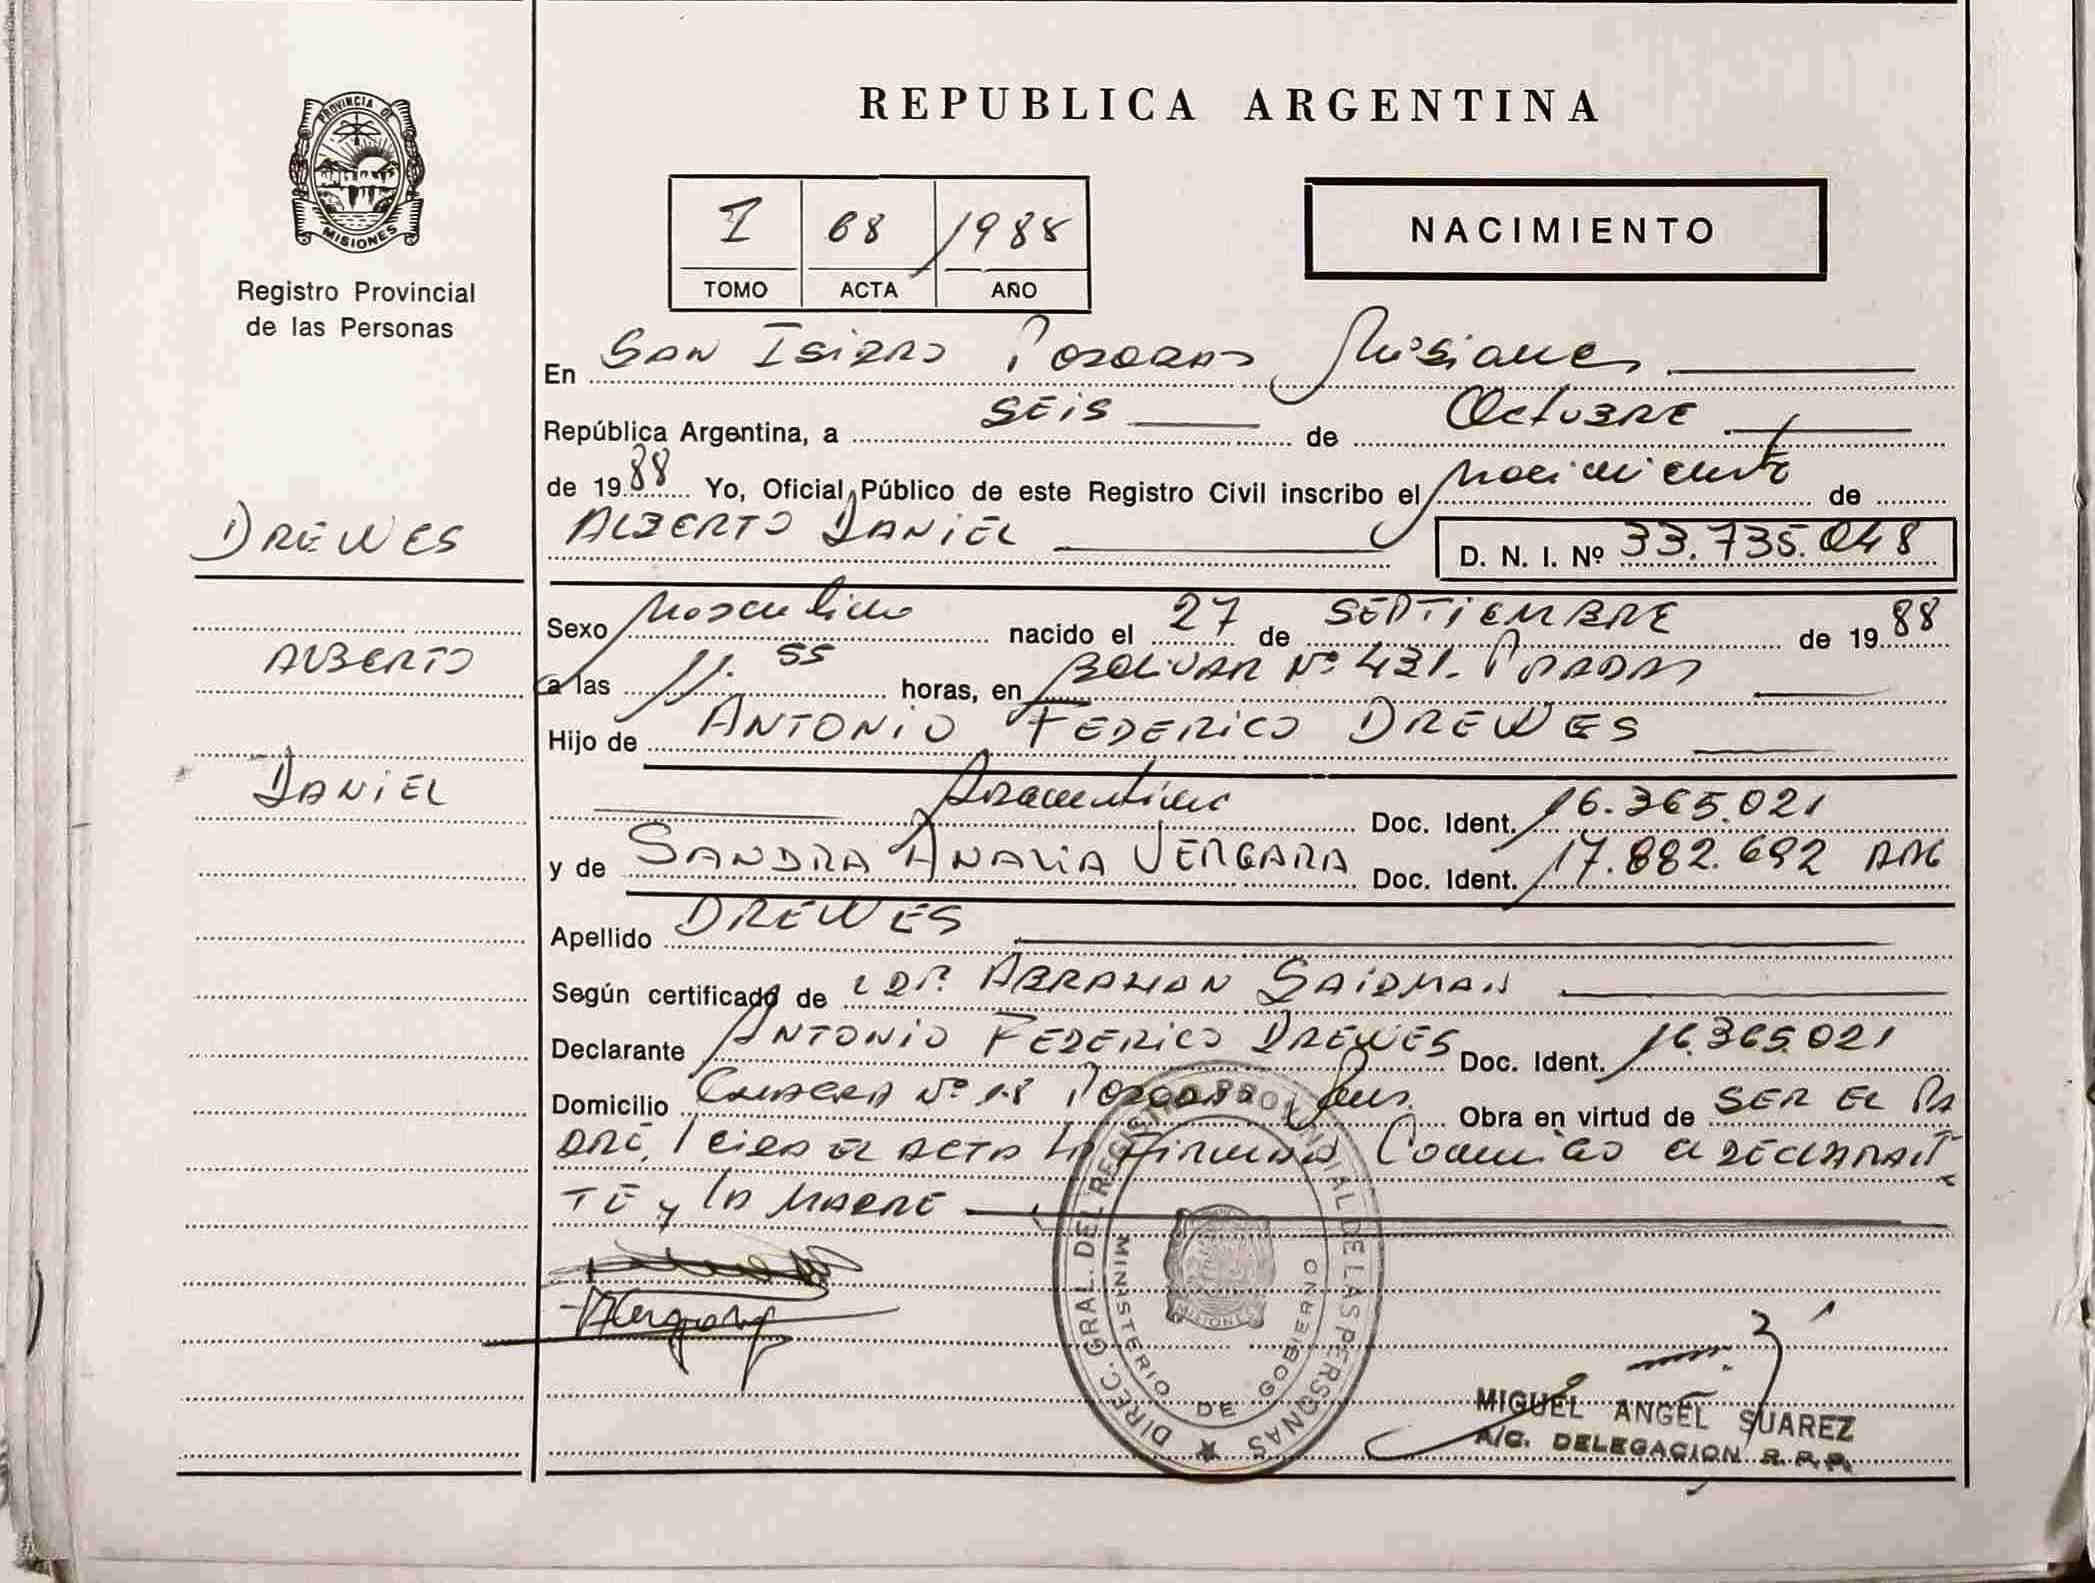 PROVINCIA DE
MISIONES
Registro Provincial
de las Personas
REPUBLICA ARGENTINA
NACIMIENTO
I 68 1988
TOMO ACTA AÑO
En San Isidro Posadas Misiones
República Argentina, a SEIS de Octubre
de 1988 Yo, Oficial Público de este Registro Civil inscribo el Nacimiento de
ALBERTO DANIEL D. N. I. Nº 33.735.048
DREWES
ALBERTO
DANIEL
Sexo Masculino nacido el 27 de SEPTIEMBRE de 1988
a las 11.55 horas, en BOLIVAR Nº 431. POSADAS
Hijo de ANTONIO FEDERICO DREWES
Argentino Doc. Ident. 16.365.021
y de SANDRA ANALIA VERGARA Doc. Ident. 17.882.692 ARG
Apellido DREWES
Según certificado de Dr. ABRAHAN SAIDMAN
Declarante ANTONIO FEDERICO DREWES Doc. Ident. 16.365.021
Domicilio CHACRA Nº 18 Posadas Obra en virtud de SER EL PA
DRE, Leida EL ACTA LA FIRMAN Conmigo el DECLARAN
TE y LA MADRE
DIREC. GRAL. DEL REGISTRO PROVINCIAL DE LAS PERSONAS
MINISTERIO DE GOBIERNO
MISIONES
MIGUEL ANGEL SUAREZ
A/C. DELEGACION R.P.P.